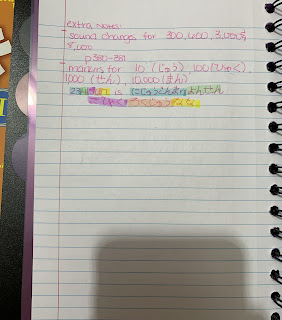 extra notes:
- sound changes for 300, 600, 3,000, & 8,000
p 380-381
- markers for 10 (じゅう), 100 (ひゃく), 1000 (せん), 10,000 (まん)
is にじゅう まん よんせん
ごひゃく ろくじゅう なな